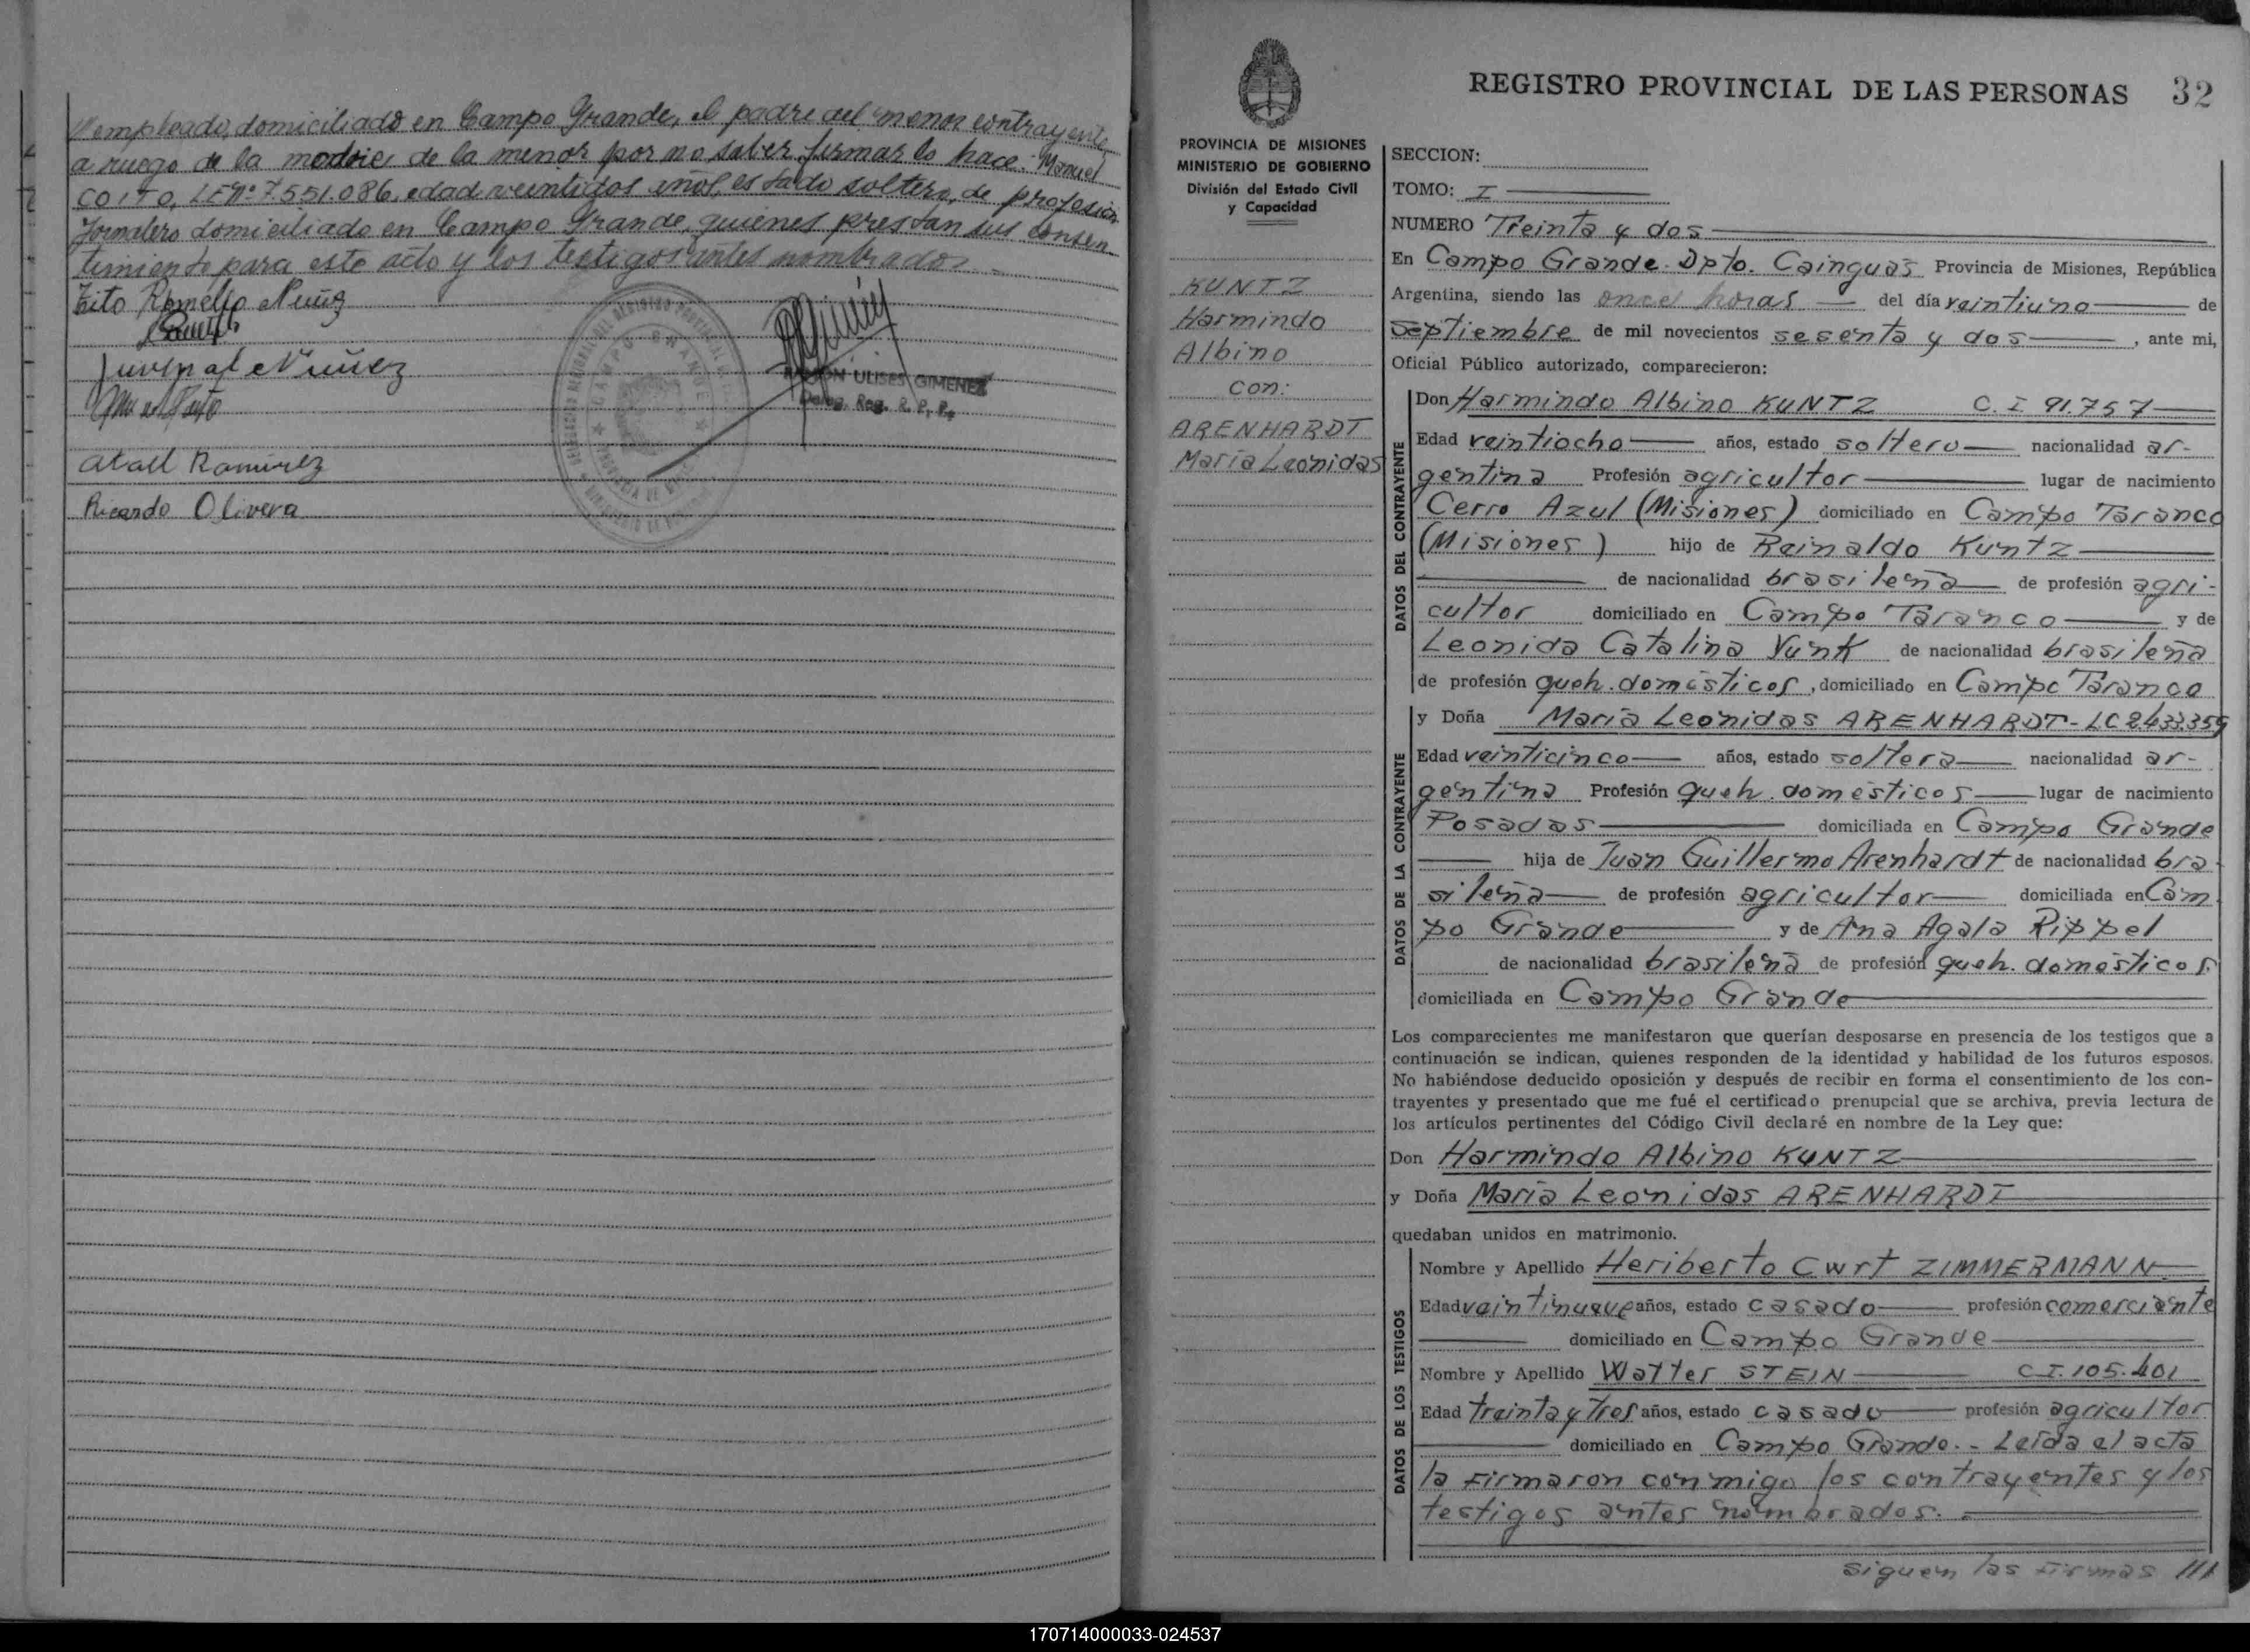 empleado, domiciliado en Campo Grande, el padre del menor contrayente
a ruego de la madre de la menor por no saber firmar lo hace: Manuel
COITO, LE Nº 7.551.086, edad veintidos años, estado soltero, de profesión
Jornalero domiciliado en Campo Grande, quienes prestan sus consen
timiento para este acto y los testigos antes nombrados.
Zito Romelio Nuñz
Juvenal Nuñez
RAMON ULISES GIMENEZ
Deleg. Reg. R. P. P.
CAMPO GRANDE
Atall Ramirez
Ricardo Olivera
PROVINCIA DE MISIONES
MINISTERIO DE GOBIERNO
División del Estado Civil
y Capacidad
KUNTZ
Harmindo
Albino
con:
ARENHARDT
María Leonidas
REGISTRO PROVINCIAL DE LAS PERSONAS 32
SECCION:
TOMO: I
NUMERO Treinta y dos
En Campo Grande Dpto. Cainguas Provincia de Misiones, República
Argentina, siendo las once horas del día veintiuno de
Septiembre de mil novecientos sesenta y dos, ante mi,
Oficial Público autorizado, comparecieron:
DATOS DEL CONTRAYENTE
Don Harmindo Albino KUNTZ C. I 91.757
Edad veintiocho años, estado soltero nacionalidad ar-
gentina Profesión agricultor lugar de nacimiento
Cerro Azul (Misiones) domiciliado en Campo Taranco
(Misiones) hijo de Reinaldo Kuntz
de nacionalidad brasileña de profesión agri-
cultor domiciliado en Campo Taranco y de
Leonida Catalina Vunk de nacionalidad brasileña
de profesión queh. domésticos, domiciliado en Campo Taranco
DATOS DE LA CONTRAYENTE
y Doña María Leonidas ARENHARDT - LC 2.433.359
Edad veinticinco años, estado soltera nacionalidad ar-
gentina Profesión queh. domésticos lugar de nacimiento
Posadas domiciliada en Campo Grande
hija de Juan Guillermo Arenhardt de nacionalidad bra-
sileña de profesión agricultor domiciliada en Cam
po Grande y de Ana Agala Rippel
de nacionalidad brasileña de profesión queh. domésticos
domiciliada en Campo Grande
Los comparecientes me manifestaron que querían desposarse en presencia de los testigos que a
continuación se indican, quienes responden de la identidad y habilidad de los futuros esposos.
No habiéndose deducido oposición y después de recibir en forma el consentimiento de los con-
trayentes y presentado que me fué el certificado prenupcial que se archiva, previa lectura de
los artículos pertinentes del Código Civil declaré en nombre de la Ley que:
Don Harmindo Albino KUNTZ
y Doña María Leonidas ARENHARDT
quedaban unidos en matrimonio.
DATOS DE LOS TESTIGOS
Nombre y Apellido Heriberto Cwrt ZIMMERMANN
Edad veintinueve años, estado casado profesión comerciante
domiciliado en Campo Grande
Nombre y Apellido Walter STEIN C.I. 105.401
Edad treinta y tres años, estado casado profesión agricultor
domiciliado en Campo Grande.- Leída el acta
la firmaron conmigo los contrayentes y los
testigos antes nombrados.
siguen las firmas ///
170714000033-024537